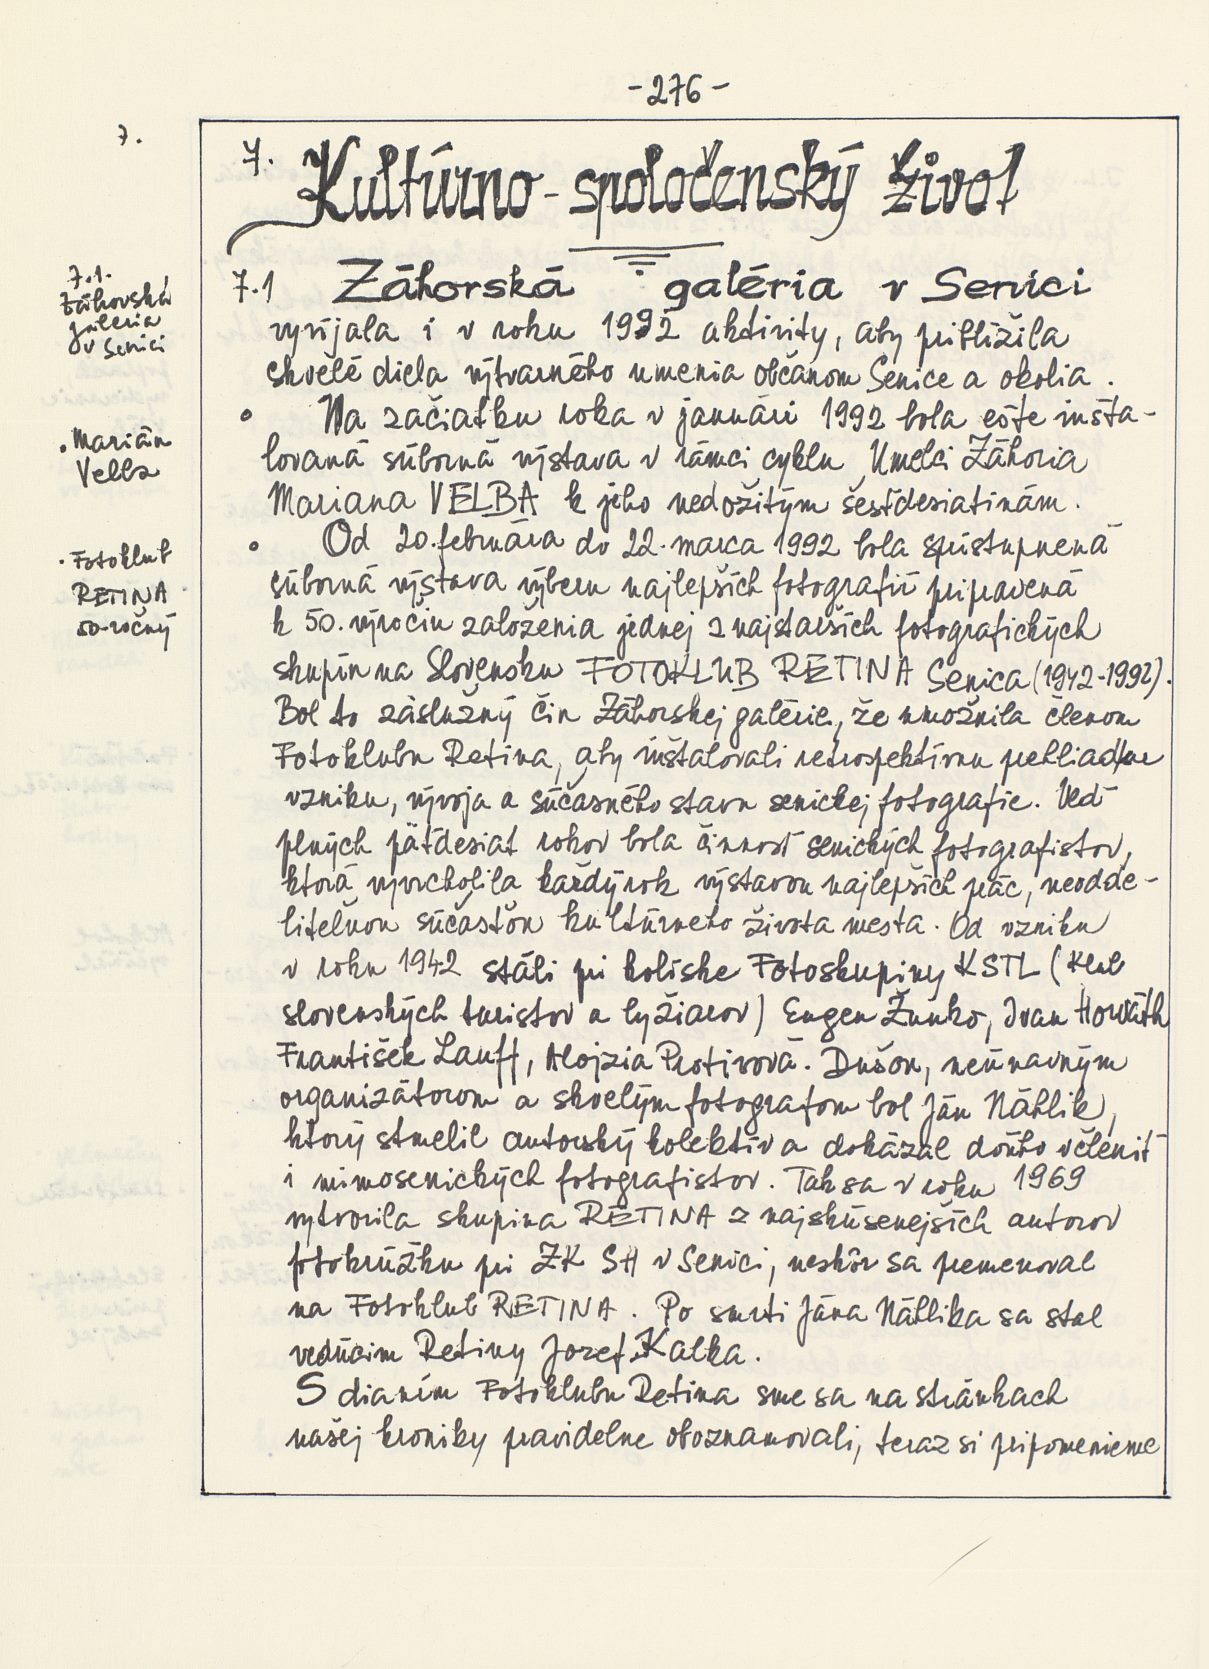 -276-
7.
7. Kultúrno-spoločenský život
7.1.
Záhorská
galéria
v Senici
7.1 Záhorská galéria v Senici
vyvíjala i v roku 1992 aktivity, aby priblížila
skvelé diela výtvarného umenia občanom Senice a okolia.
• Na začiatku roka v januári 1992 bola ešte inšta-
lovaná súborná výstava v rámci cyklu Umelci Záhoria
• Marián
Velba
Mariana VELBA k jeho nedožitým šesťdesiatinám.
• Od 20. februára do 22. marca 1992 bola sprístupnená
• Fotoklub
RETINA
50-ročný
súborná výstava výberu najlepších fotografií pripravená
k 50. výročiu založenia jednej z najstarších fotografických
skupín na Slovensku FOTOKLUB RETINA Senica (1942-1992).
Bol to záslužný čin Záhorskej galérie, že umožnila členom
Fotoklubu Retina, aby inštalovali retrospektívnu prehliadku
vzniku, vývoja a súčasného stavu senickej fotografie. Veď
plných päťdesiat rokov bola činnosť senických fotografistov,
ktorá vyvrcholila každý rok výstavou najlepších prác, neodde-
liteľnou súčasťou kultúrneho života mesta. Od vzniku
v roku 1942 stáli pri kolíske Fotoskupiny KSTL (Klub
slovenských turistov a lyžiarov) Eugen Žunko, Ivan Horváth
František Lauff, Alojzia Protivová. Dušou, neúnavným
organizátorom a skvelým fotografom bol Ján Náhlik,
ktorý stmelil autorský kolektív a dokázal doňho včleniť
i mimosenických fotografistov. Tak sa v roku 1969
vytvorila skupina RETINA z najskúsenejších autorov
fotokrúžku pri ZK SH v Senici, neskôr sa premenoval
na Fotoklub RETINA. Po smrti Jána Náhlika sa stal
vedúcim Retiny Jozef Kalka.
S dianím Fotoklubu Retina sme sa na stránkach
našej kroniky pravidelne oboznamovali, teraz si pripomenieme